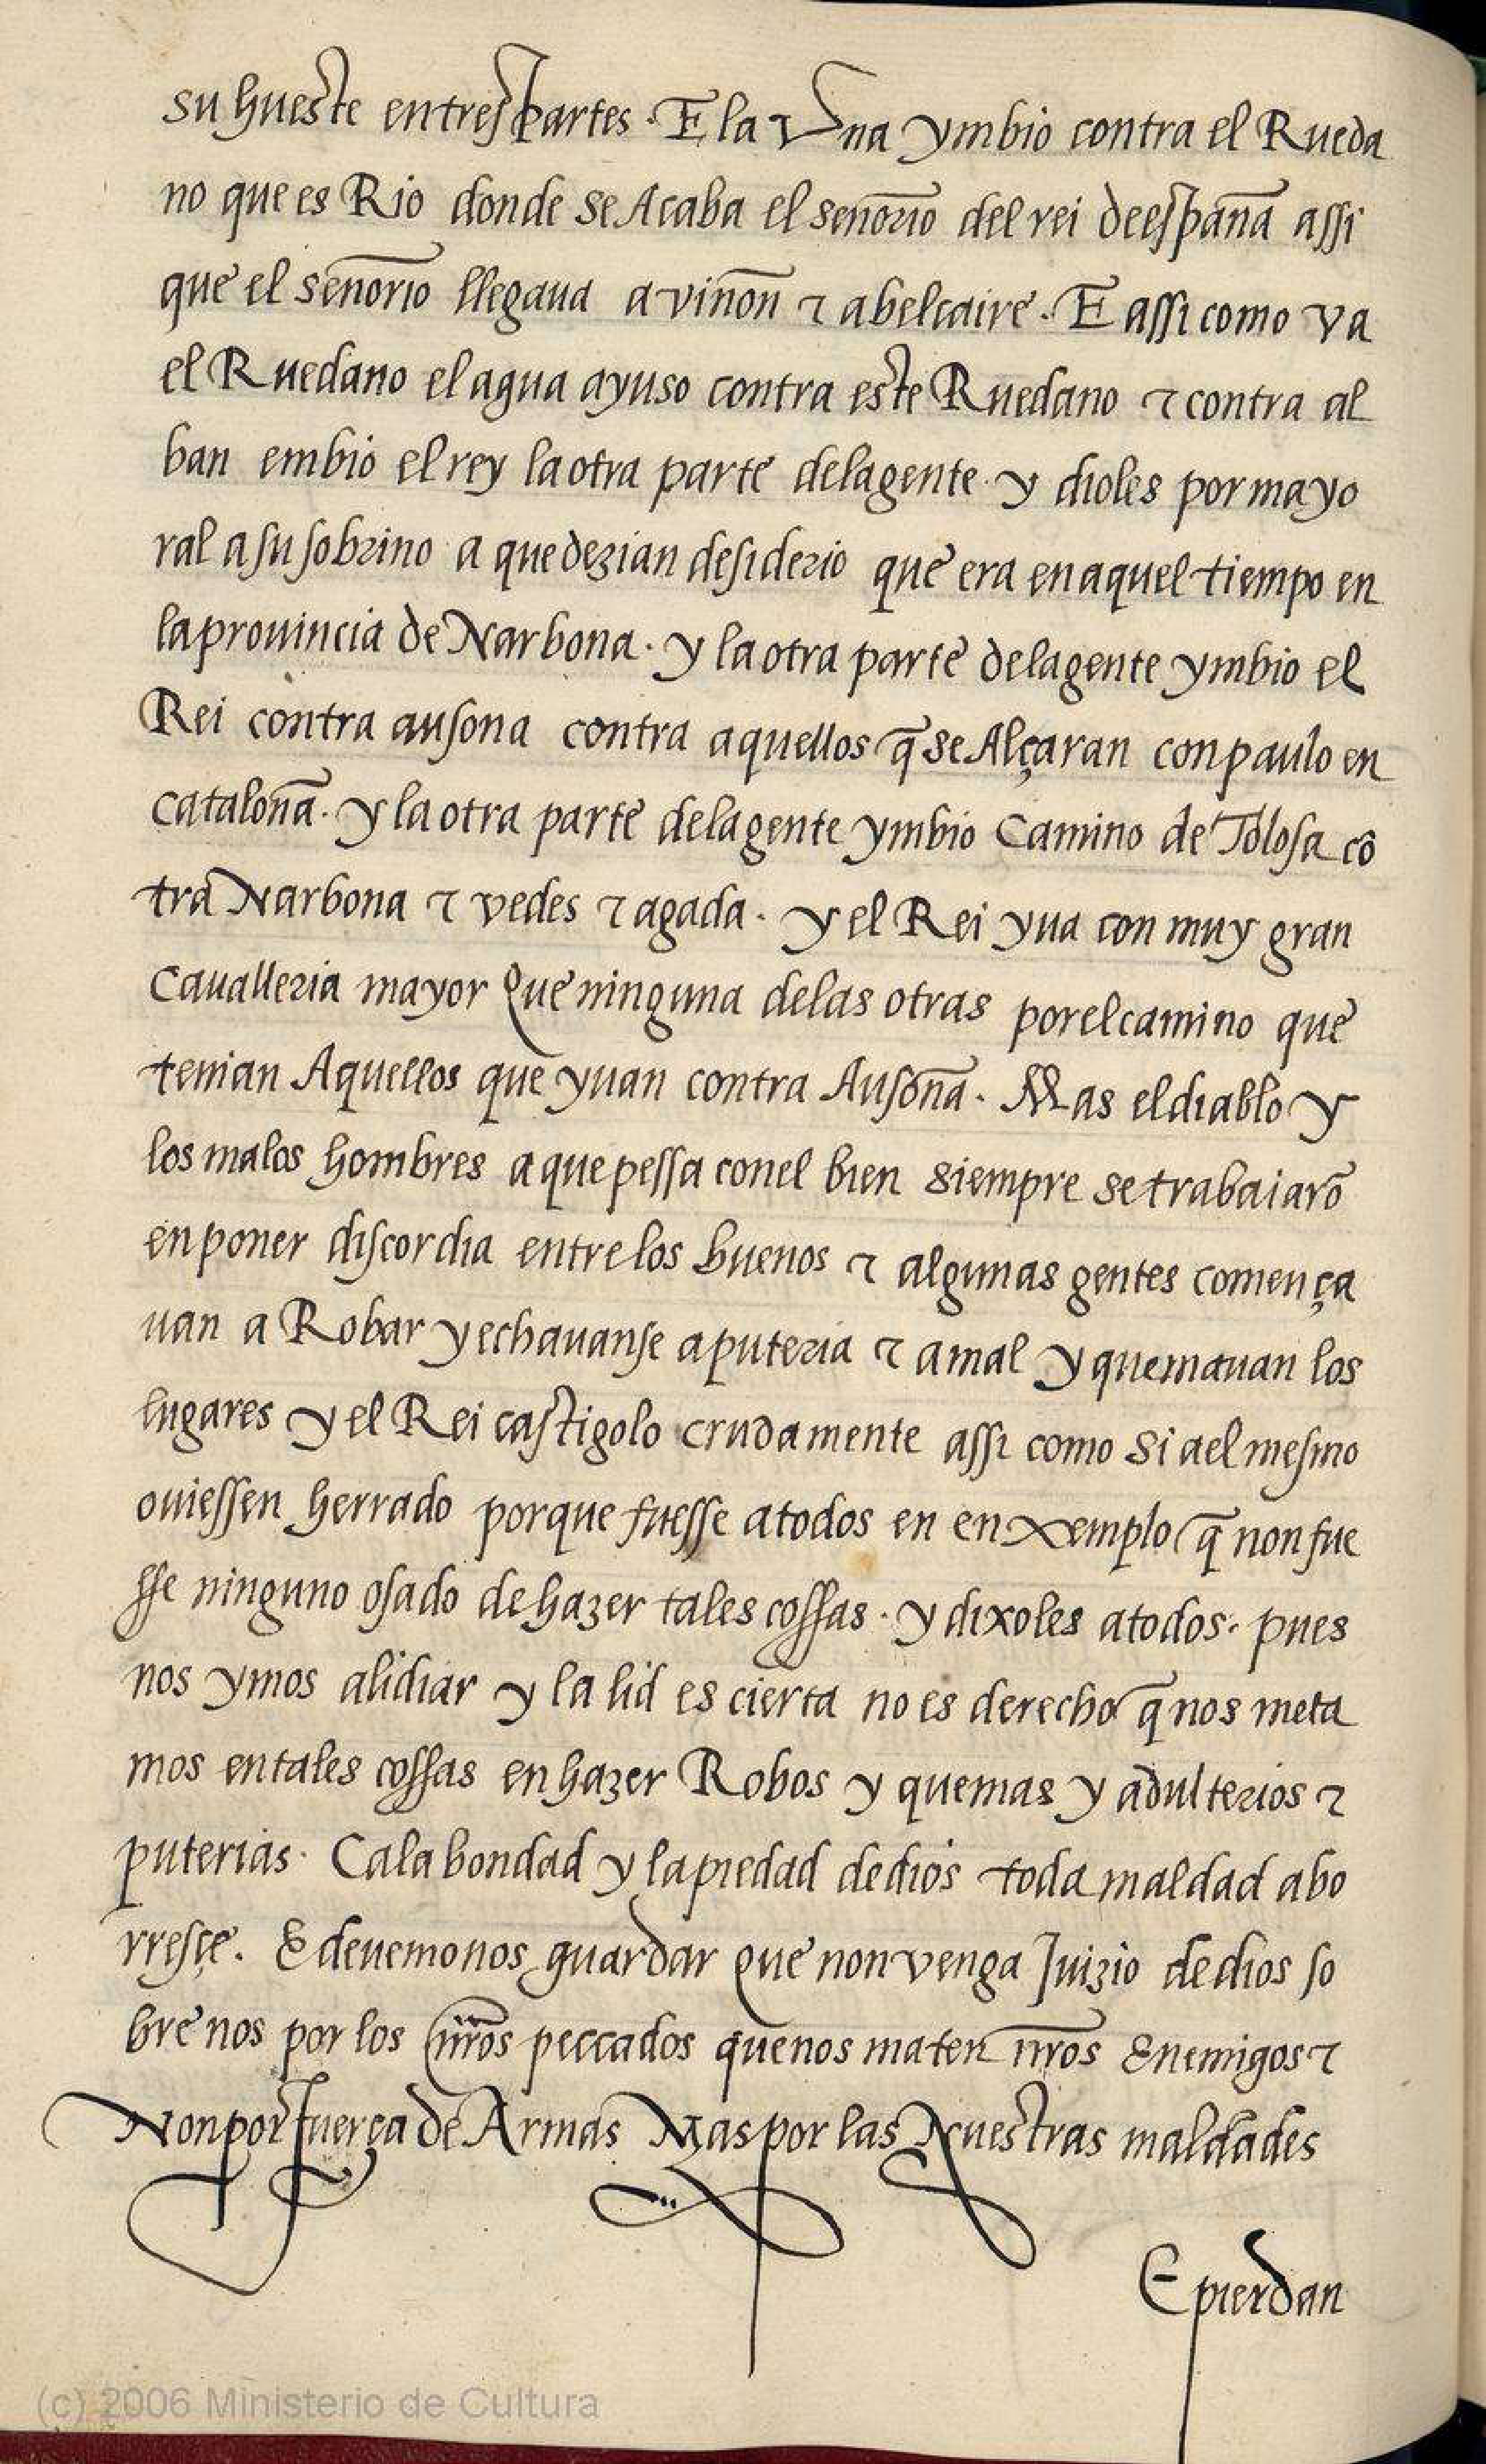 su hueste entres partes. E la Vna ymbio contra el Rueda
no que es Rio donde se Acaba el señorio del rei de españa assi
que el señorio llegaua a viñon ⁊ a belcaire. E assi como va
el Ruedano el agua ayuso contra este Ruedano ⁊ contra al
ban embio el rey la otra parte dela gente y dioles por mayo
ral a su sobrino a que dezian desiderio que era en aquel tiempo en
la prouincia de Narbona. y la otra parte dela gente ymbio el
Rei contra ausona contra aquellos q̃ se Alçaran con paulo en
cataloña. y la otra parte dela gente ymbio Camino de Tolosa cõ
tra Narbona ⁊ vedes ⁊ agada. y el Rei yua con muy gran
Caualleria mayor Que ninguna delas otras por el camino que
tenian Aquellos que yuan contra Ausoña. Mas el diablo y
los malos hombres a que pessa con el bien siempre se trabaiarõ
en poner discordia entre los buenos ⁊ algunas gentes comença
uan a Robar y echauanse a puteria ⁊ a mal y quemauan los
lugares y el Rei castigolo crudamente assi como si a el mesmo
ouiessen herrado porque fuesse a todos en enxemplo q̃ non fue
sse ninguno osado de hazer tales cossas. y dixoles a todos. pues
nos ymos a lidiar y la lid es cierta no es derecho q̃ nos meta
mos en tales cossas en hazer Robos y quemas y adulterios ⁊
puterias. Ca la bondad y la piedad de dios toda maldad abo
rresçe. E deuemonos guardar Que non venga Juizio de dios so
bre nos por los nr̃os peccados que nos maten nr̃os Enemigos ⁊
Non por fuerça de Armas Mas por las Nuestras maldades
E pierdan
(c) 2006 Ministerio de Cultura